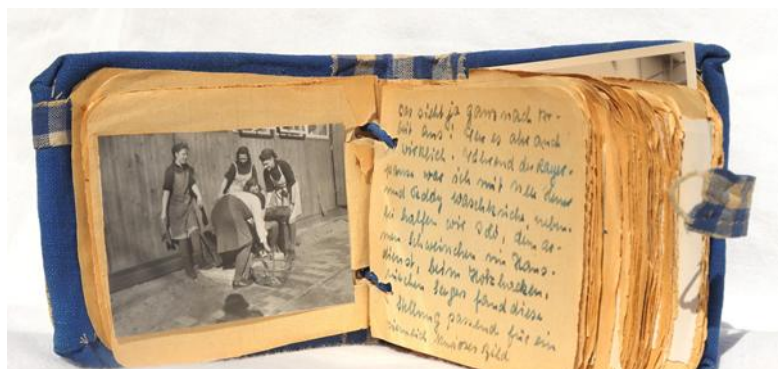 Das sieht ja ganz nach Ar-
beit aus! War es aber auch
wirklich. Während der Lager-
pause war ich mit
und Teddy Waschküche, neben-
bei halfen wir dem ar-
men Schweinchen im Haus-
dienst, beim Holzhacken.
fand diese
Stellung passend für ein
ziemlich Bild